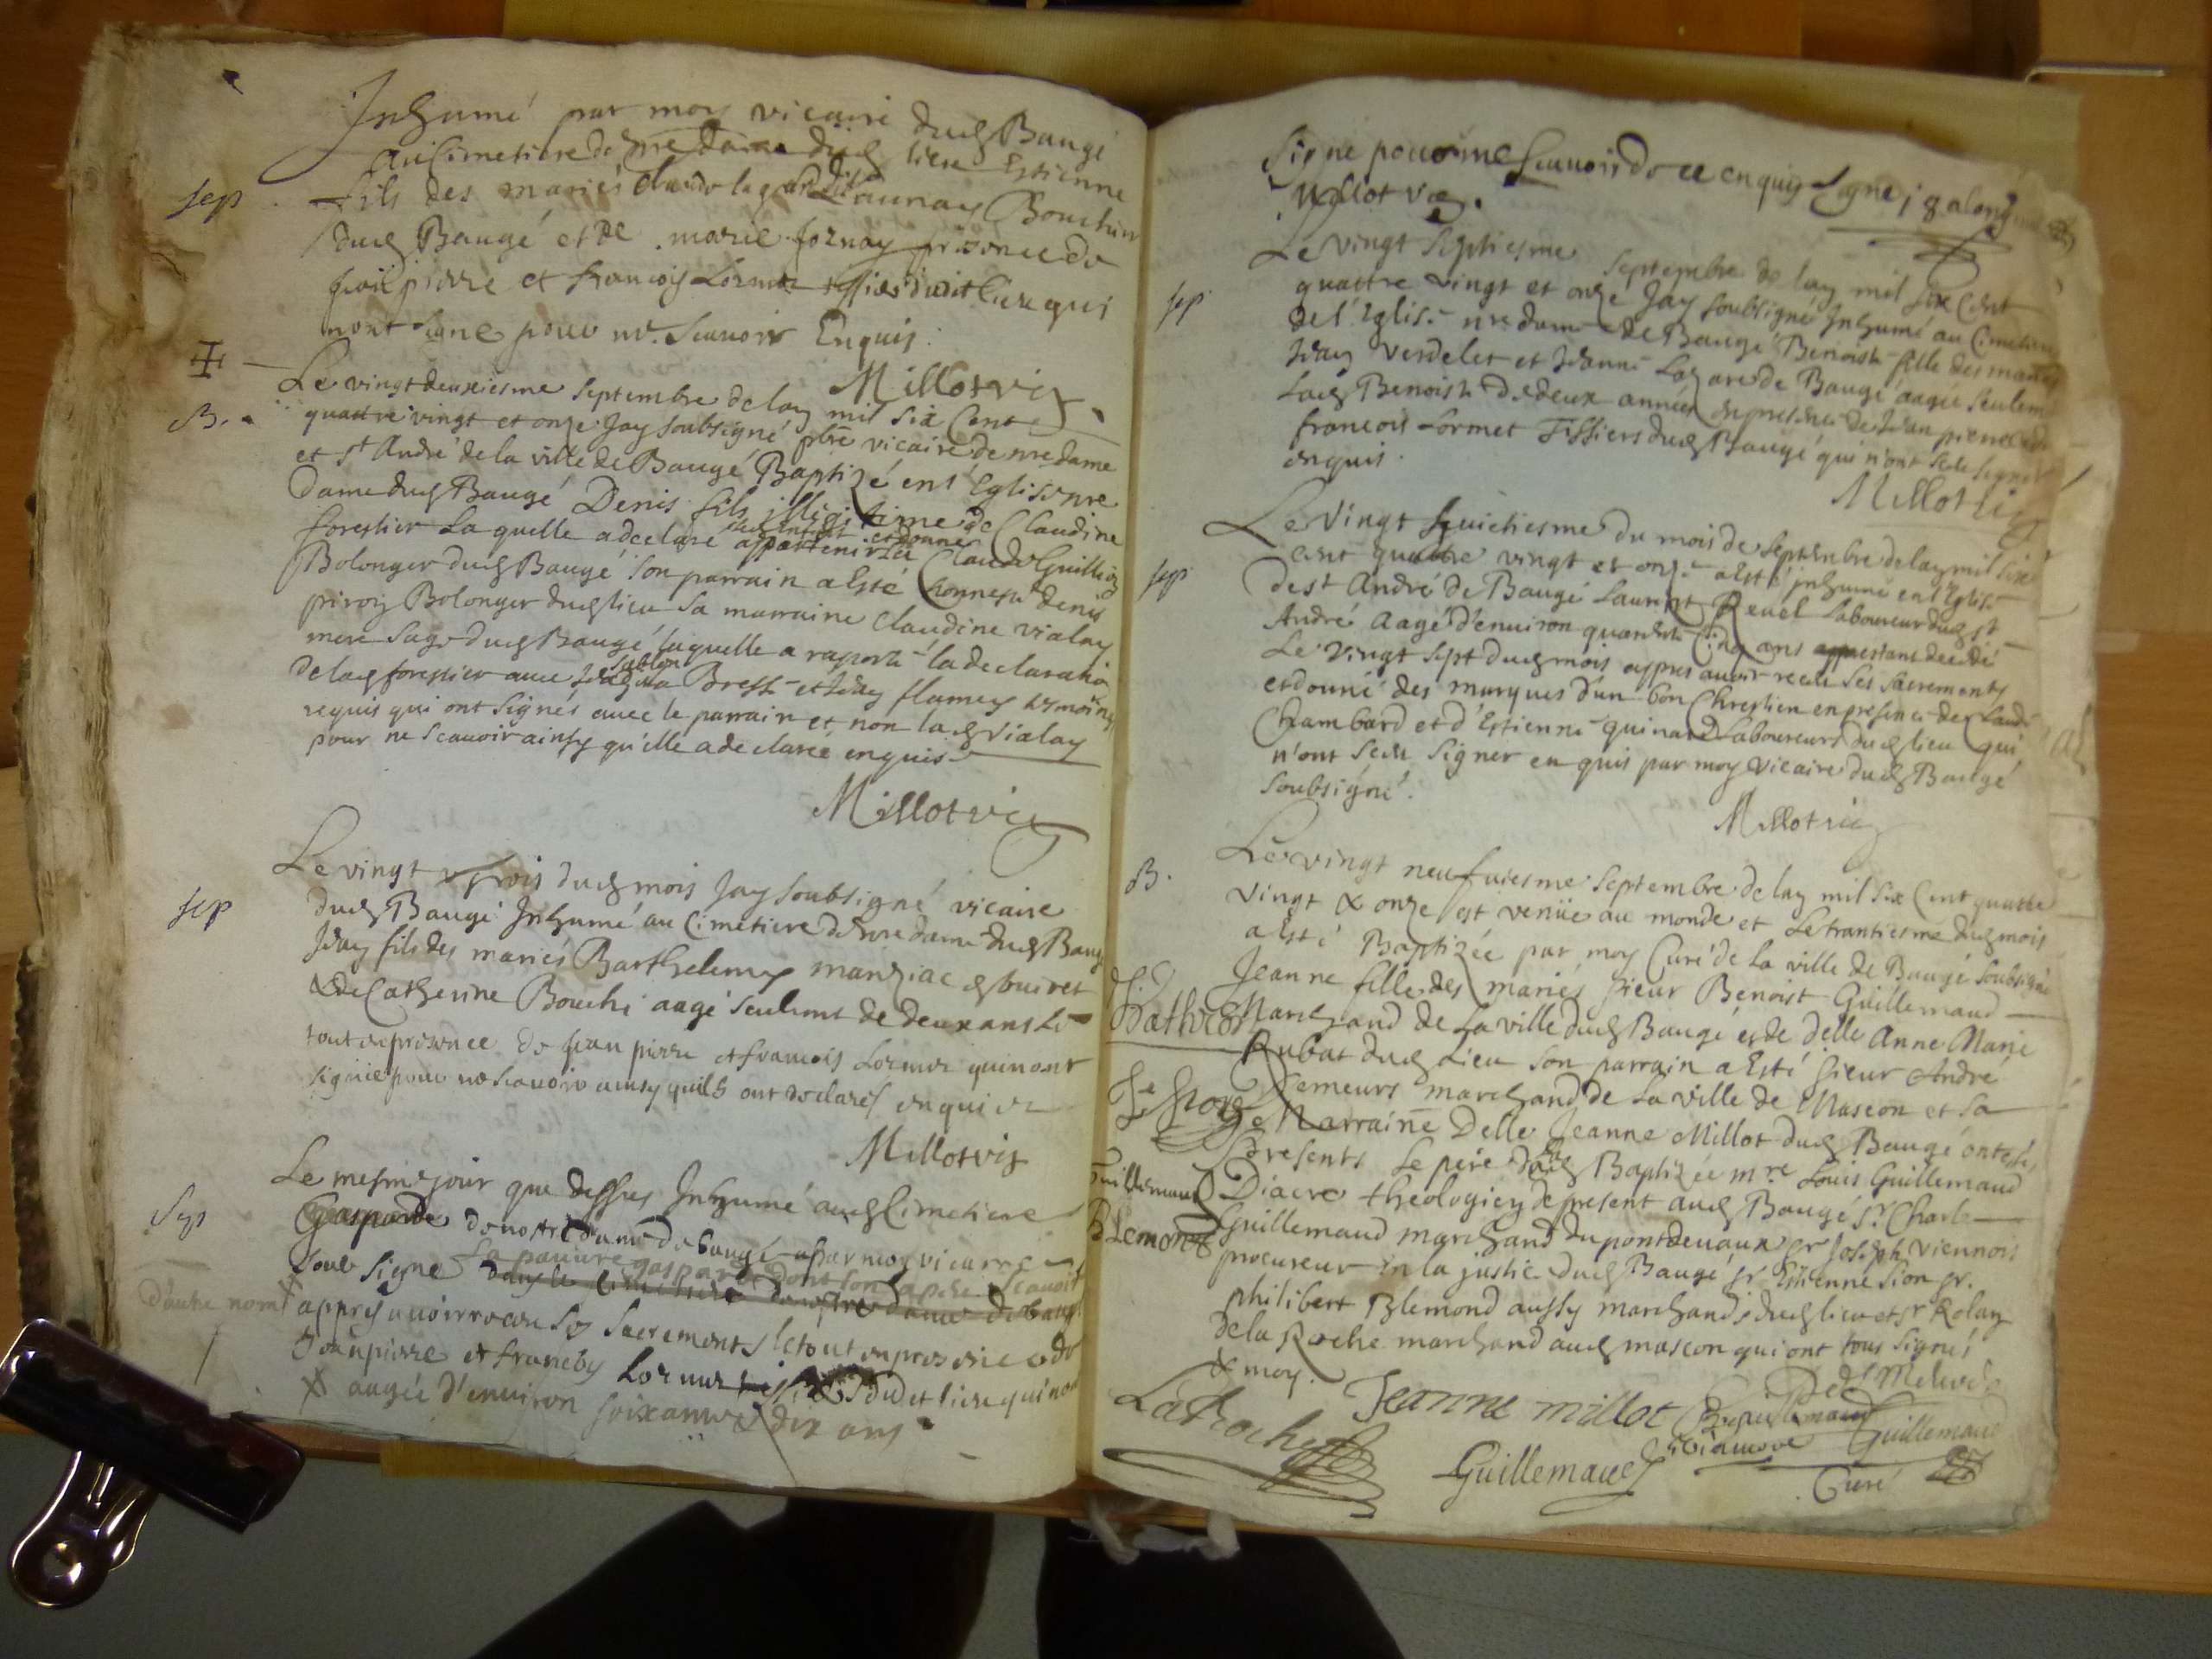 Inhumé par moy vicaire dud Baugé
au Cimetiere de nre dame dud lieu Estienne
sep
fils des mariés Claude Bouchin
dud Baugé et de marie fornay presence de
jean pierre et francois Lormet dudit lieu qui
nont signe pour ne scauoir Enquis.
Millot vic
B.
Le vingt deuxiesme septembre de lan mil six Cent
quattre vingt et onze Jay soubsigné pbre vicaire de nre dame
et st André de la ville de Baugé Baptizé en l'Eglise nre
dame dud Baugé Denis fils illegitime de Claudine
forestier Laquelle a declaré appartenir à Claude Guillion
Bolonger dud Baugé son parrain a Esté honneste denis
piroy Bolonger dud lieu sa marraine Claudine vialay
mere sage dud Baugé laquelle a raporté la declaration
de lad forestier auec Brest et Jean flamey tesmoins
requis qui ont signés auec le parrain et non lad vialay
pour ne scauoir ainsy qu'elle a declaré enquise
Millot vic
Le vingt trois dud mois Jay soubsigné vicaire
sep
dud Baugé Inhumé au Cimetiere de nre dame dud Baugé
Jean fils des mariés Barthelemy manziac
& de Catherine Bouchi aagé seulement de deux ans le
tout en presence de jean pierre et francois Lormet qui nont
signé pour ne scauoir ainsy quils ont declarés enquis
Millot vic
Le mesme jour que dessus Inhumé aud Cimetiere
Sep
Gasparde de nostre dame de baugé par moy vicaire
soub signé la pauure gasparde dont son a peu scauoir
d'autre nom
dans le Cimetiere de nostre dame de baugé
appres auoir receu ses sacrements le tout en presence de
Jean pierre et francois Lormet dudit lieu qui nont
aagée d'enuiron soixante & dix ans
signe pour ne scauoir de ce enquis
Millot vic.
Le vingt septiesme septembre de lan mil six Cent
sep
quattre vingt et onze Jay soubsigné Inhumé au Cimetiere
de l'Eglise nre dame de Baugé Benoiste fille des mariés
Jean Verdelet et Jeanne Lazare de Baugé aagée seulem
Lad Benoiste de deux années en presence de Jean pierre et de
francois Lormet dud Baugé qui n'ont sceu signer
enquis.
Millot vic
Le Vingt huictiesme du mois de septembre de lan mil six
cent quattre vingt et onze a esté inhumé en l'Eglise
sep
de st André de Baugé Laurent Reuel Laboureur dud st
André aagé d'enuiron quarente Cinq ans estant decedé
Le vingt sept dud mois appres auoir receu ses sacrements
et donné des marques d'un bon Chrestien en presence de Claude
Chambard et d'Estienne quinard Laboureurs dud lieu qui
n'ont sceu signer enquis par moy vicaire dud Baugé
soubsigné.
Millot vic
B.
Le vingt neufuiesme septembre de lan mil six Cent quattre
vingt & onze est venüe au monde et le trantiesme dud mois
a Esté Baptizée par moy Curé de la ville de Baugé soubsigné
Jeanne fille des mariés sieur Benoist Guillemaud
Marchand de la ville dud Baugé et de delle Anne Marie
Rubat dud Lieu son parrain a Esté sieur André
Demeurs marchand de la ville de Mascon et sa
Marraine Delle Jeanne Millot dud Baugé ont estés
presents Le pere de lad Baptizée mre Louis Guillemaud
Guillemaud
Diacre theologien de present aud Baugé sr Charle
Blemond
Guillemaud marchand du pont deuaux sr Joseph Viennois
procureur en la justice dud Baugé sr Estienne Sion sr
philibert Blemond aussy marchands dud lieu et sr Rolan
de la Roche marchand aud mascon qui ont tous signés
& moy.
LaRoche
Jeanne millot
Guillemaud
Guillemaud
Curé